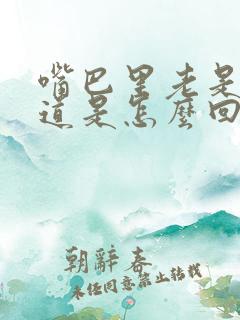 嘴巴里老是
道是怎麽回
朝辭春
未经同意禁止转载